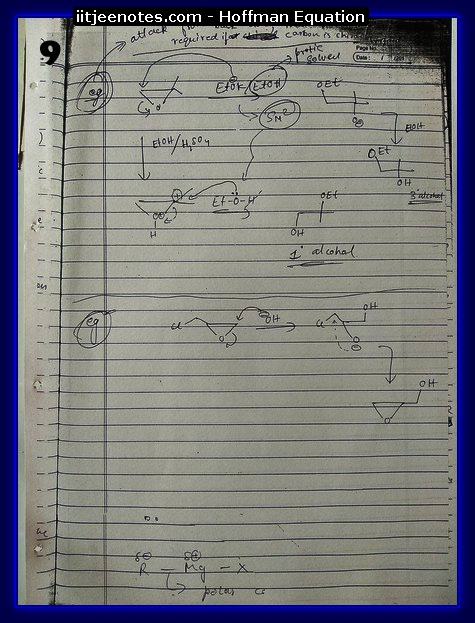 iitjeenotes.com - Hoffman Equation
9
attack
required if carbon is chiral
protic
solvent
Page No.
Date:
eg
O
EtO⊖K⊕/EtOH
SN2
OEt
O⊖
EtOH
OEt
OH
3° alcohol
EtOH/H2SO4
⊕
O⊕
H
Et-Ö-H
OEt
OH
1° alcohol
eg
Cl
O
⊖OH
Cl
OH
O
⊖
OH
O
δ⊖ δ⊕
R - Mg - X
polar